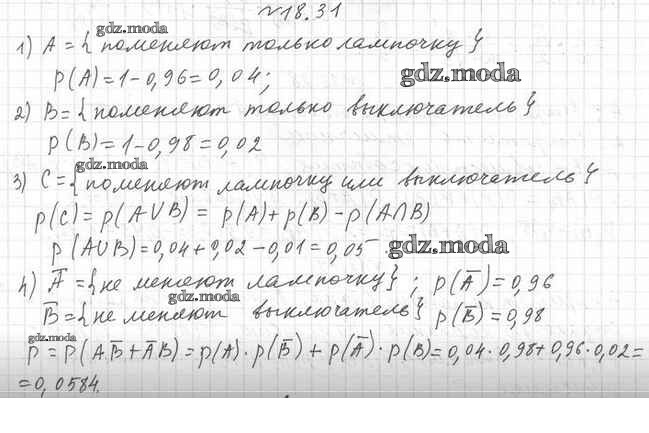 №18.31
gdz.moda
1) A = { поменяют только лампочку }
P(A)=1-0,96=0,04;
gdz.moda
2) B={ поменяют только выключатель }
P(B)=1-0,98=0,02
gdz.moda
3) C={ поменяют лампочку или выключатель }
p(C)=p(A∪B)= p(A)+p(B)-p(A∩B)
p(A∪B)=0,04+0,02-0,01=0,05
gdz.moda
4) A̅={не меняют лампочку}; p(A̅)=0,96
gdz.moda
B̅={не меняют выключатель} p(B̅)=0,98
gdz.moda
p=P(AB̅+A̅B)=p(A)·p(B̅)+p(A̅)·p(B)=0,04·0,98+0,96·0,02=
=0,0584.